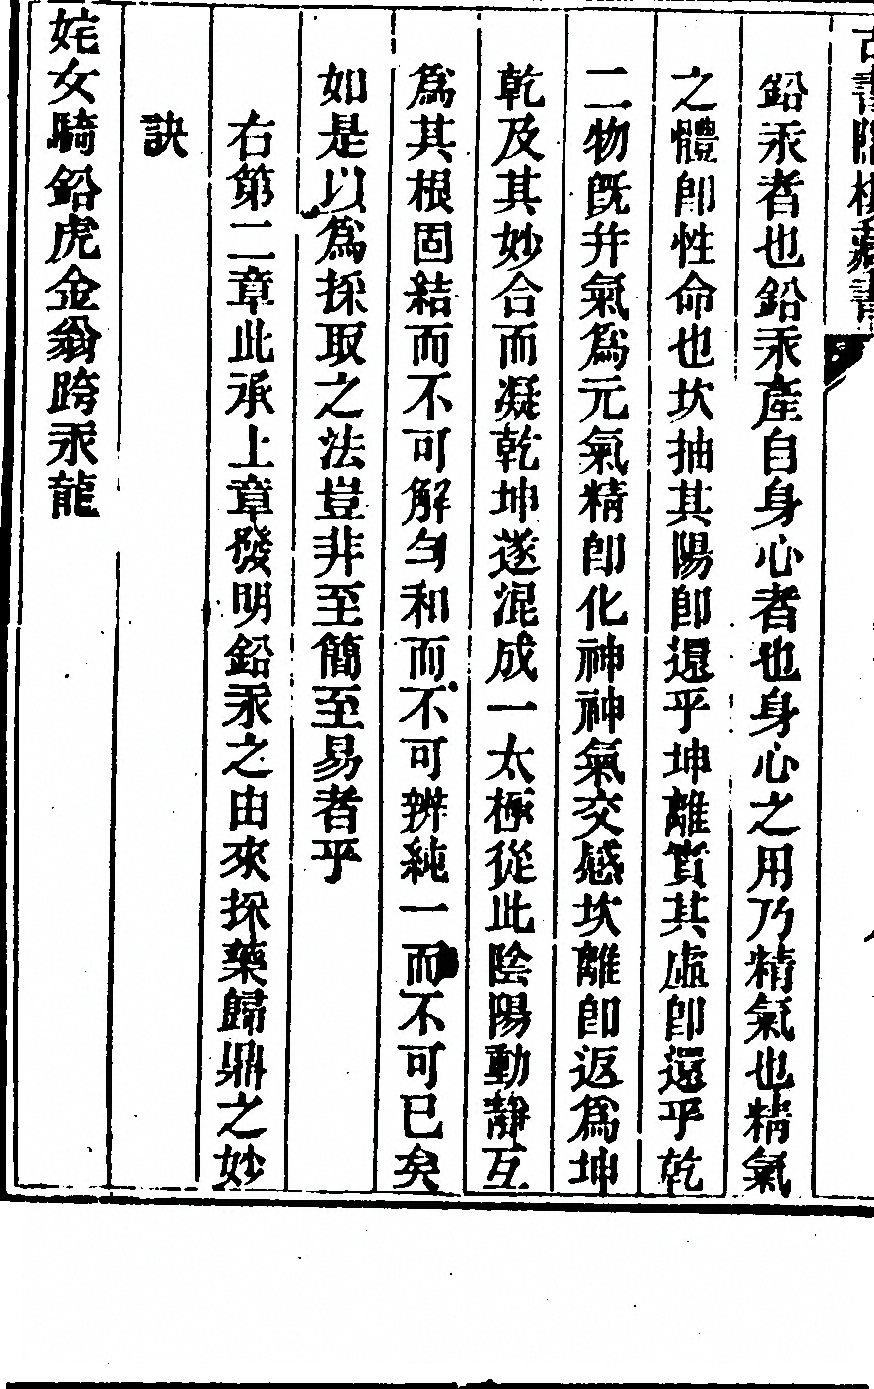 鉛汞者也鉛汞產自身心者也身心之用乃精氣也精氣
之體卽性命也坎抽其陽卽還乎坤離實其虛卽還乎乾
二物旣并氣爲元氣精卽化神神氣交感坎離卽返爲坤
乾及其妙合而凝乾坤遂混成一太極從此陰陽動靜互
爲其根固結而不可解勻和而不可辨純一而不可已矣
如是以爲採取之法豈非至簡至易者乎
右第二章此承上章發明鉛汞之由來採藥歸鼎之妙
訣
姹女騎鉛虎金翁跨汞龍